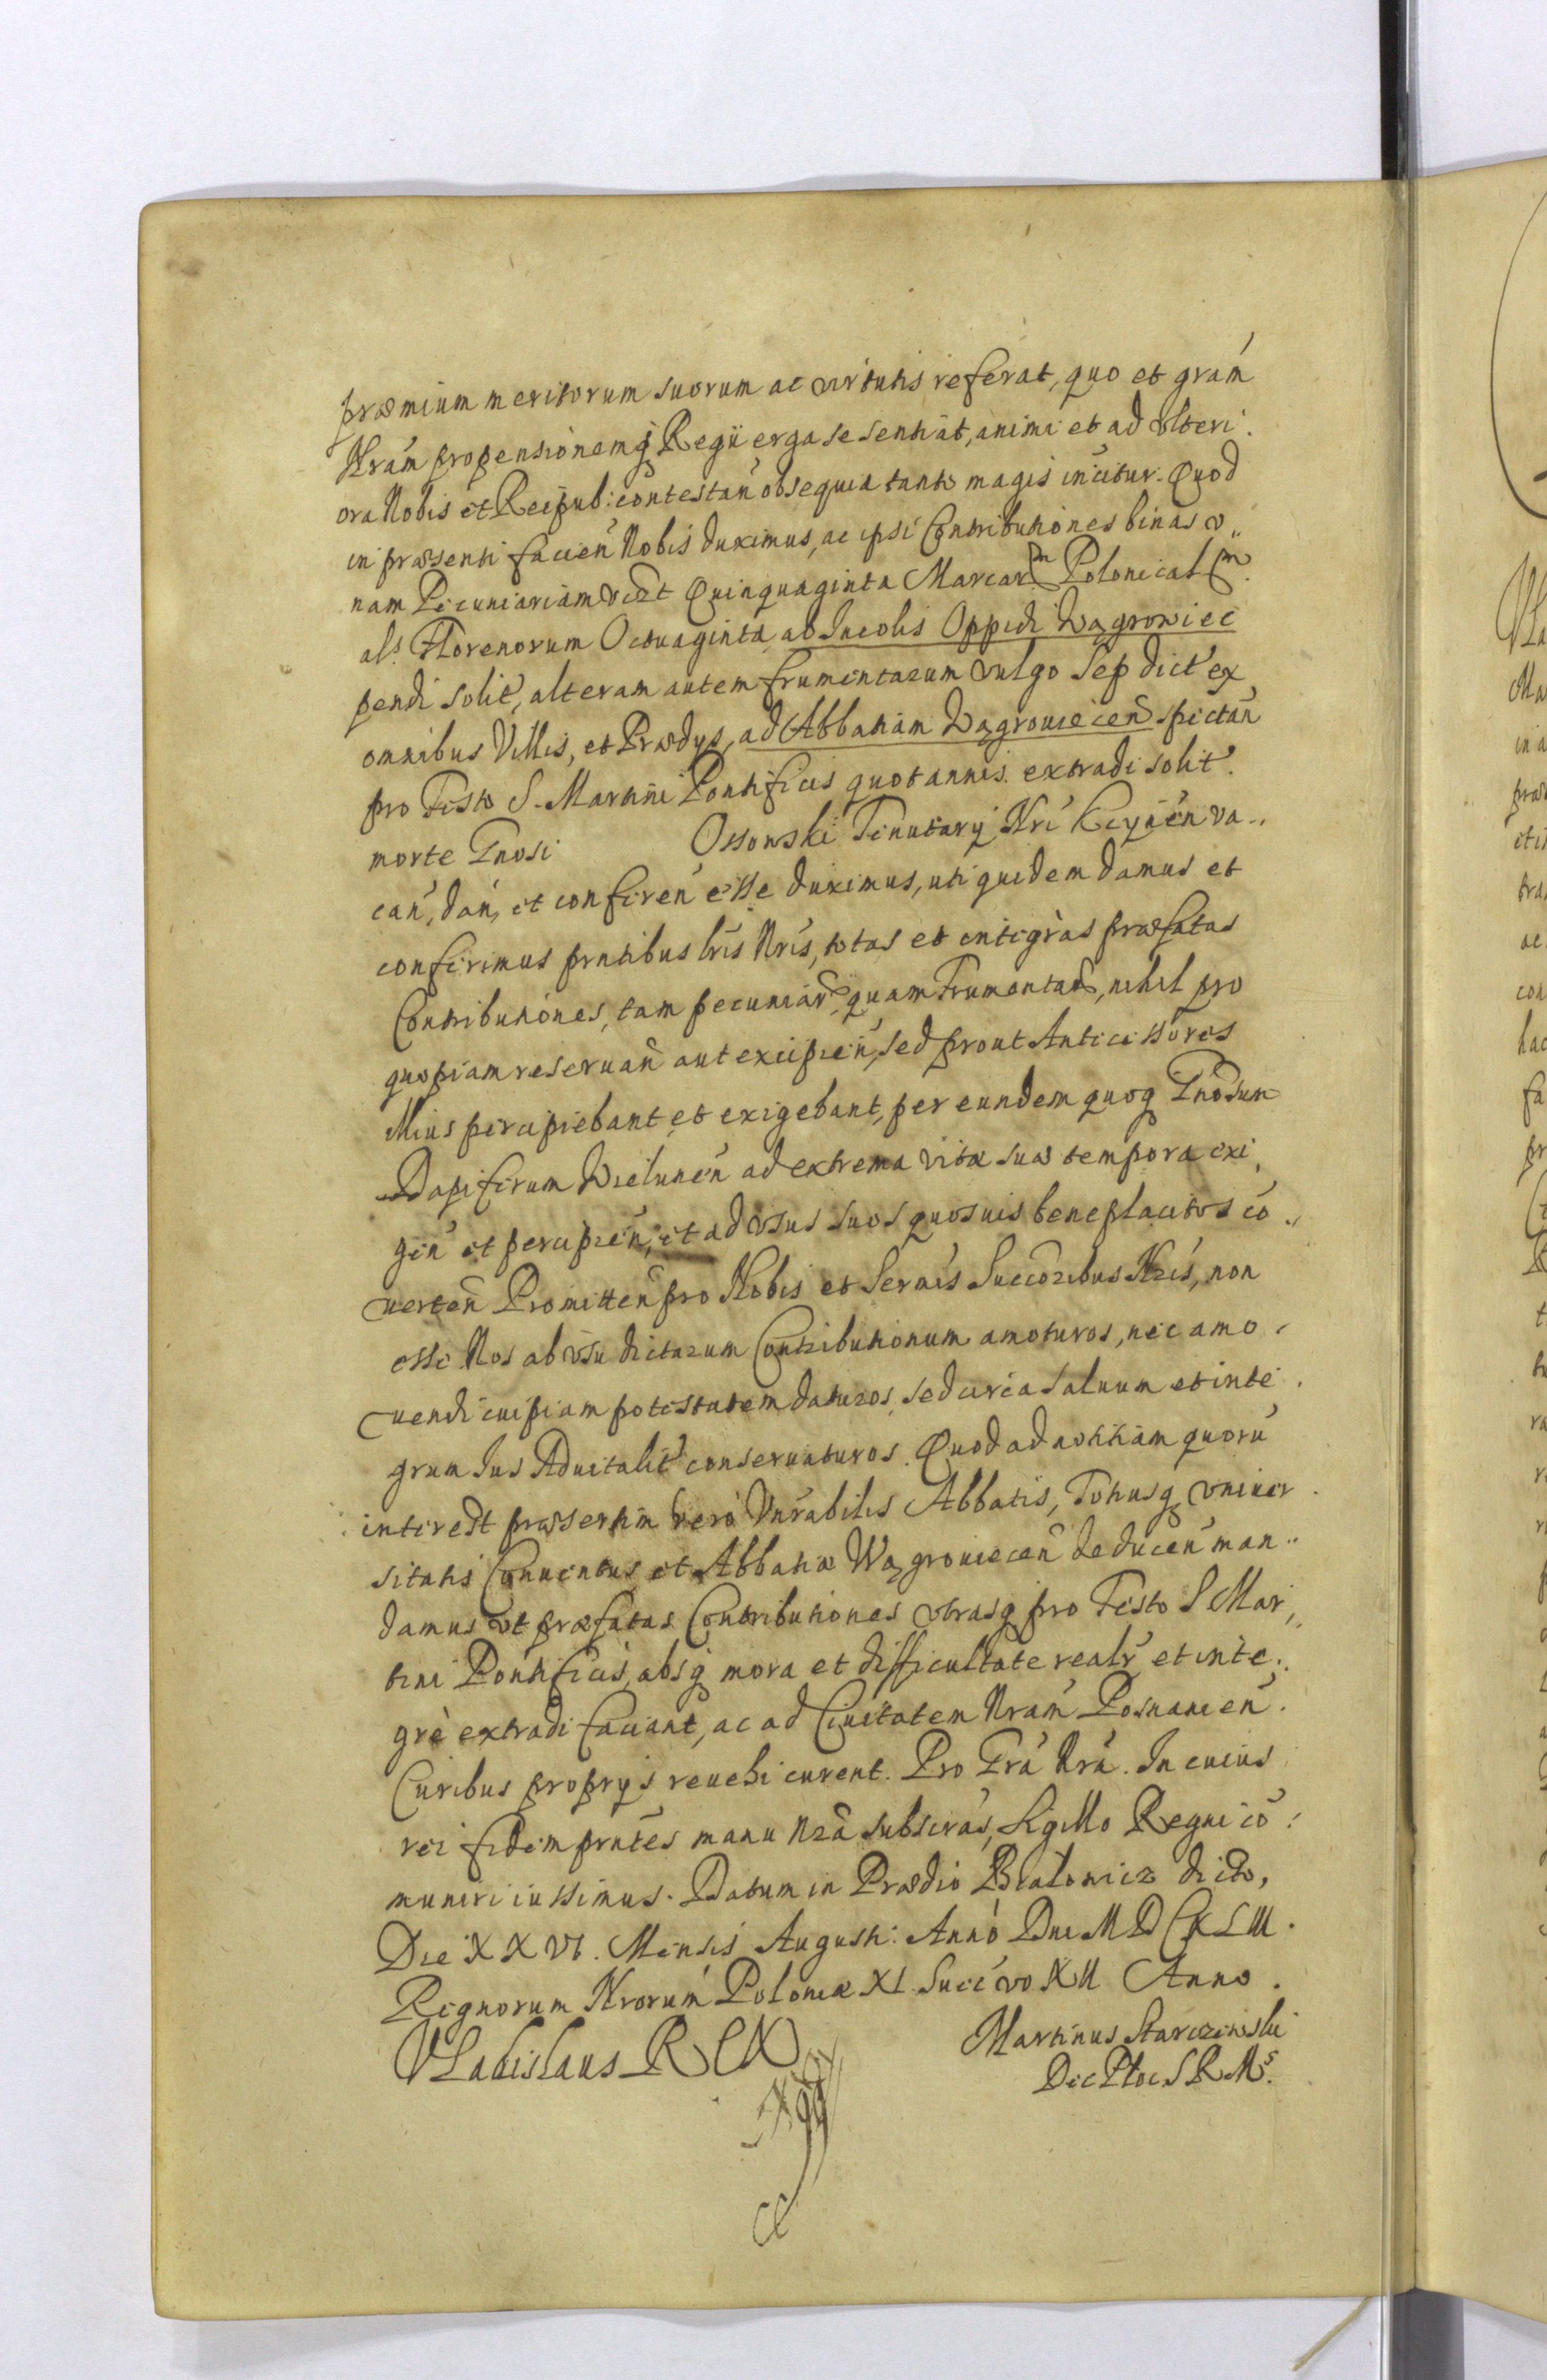 præmium meritorum suorum ac virtutis referat, quo et grám
Nrám propensionemq Regii erga se sentiat, animi et ad ulteri
ora Nobis et Reipub: contestan obsequia tanto magis incitur. Quod
in præsenti facien Nobis duximus, ac ipsi Contributiones binas v„
nam Pecuniariam vidzt Quinquaginta Marcarm Polonicalm
als Florenorum Octuaginta, ab Incolis Oppidi Wągrowiec
pendi solit, alteram autem frumentarum vulgo Sep dict ex
omnibus Villis, et Prædys, ad Abbatiam Wągrouiecen spectan
pro Festo S. Martini Pontificis quotannis extradi solit.
morte Gnosi Ossowski Tenutary Nri Kcynen va„
can, dan, et conferen esse duximus, uti quidem damus et
conferimus prntibus lris Nris, totas et integras præfatas
Contributiones, tam pecuniar, quam Frumentar, nihil pro
quopiam reseruan aut excipien, sed prout Antecessores
illius percipiebant et exigebant, per eundem quoq Gnosum
Dapiferum Wielunen ad extrema vitæ suæ tempora exi„
gen et percipien, et ad vsus suos quosuis beneplacitos co„
uerten Promitten pro Nobis et Sernis Succoribus Nris, non
esse Nos ab vsu dictarum Contributionum amoturos, nec amo„
uendi cuipiam potestatem daturos, sed circa saluum et inte
grum Ius Aduitalit conseruaturos. Quod ad notitiam quorú
interest præsertim vero Vnrabilis Abbatis, Totiusq vniuer
sitatis Conuentus et Abbatiæ Wągrouiecen deducen man„
damus vt præfatas Contributiones vtrasq pro Festo S Mar„
tini Pontificis, absq mora et difficultate realr et inte„
grè extradi faciant, ac ad Ciuitatem Nram Posnanien
Curibus proprys reuehi curent. Pro Gra Nra. In cuius
rei fidem prntes manu nra subscras, Sigillo Regni co
muniri iussimus. Datum in Prædio Białowicz dicto,
Die XXVI. Mensis Augusti: Anno Dni MDCXLIII.
Regnorum Nrorum Poloniæ XI Sueć vo XII Anno.
VLadislaus REX
Martinus Starczewski
Dec Ploc S R Ms.